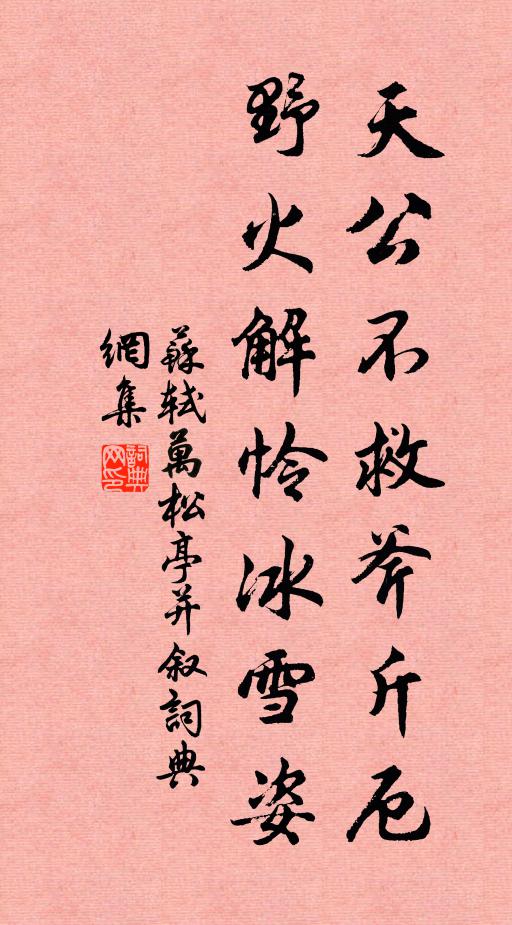 天公不救斧斤厄
野火解怜冰雪姿
蘇軾萬松亭并叙詞典
網集
詞典网印